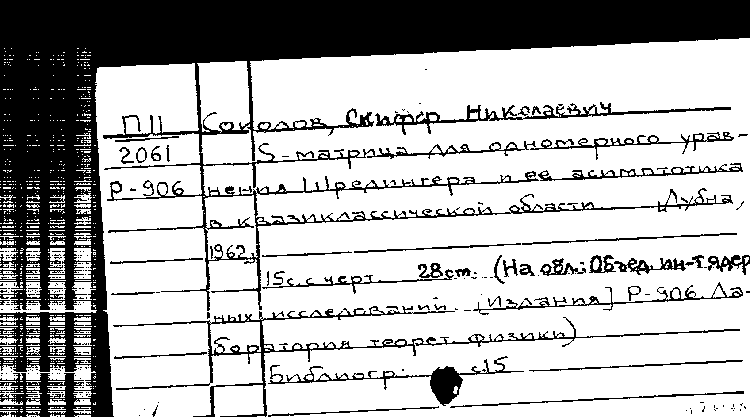 П11 Соколов, Скифер Николаевич
2061 S-матрица для одномерного урав-
Р-906 нения Шредингера и ее асимптотика
в квазиклассической области Дубна,
1962.
15с. с черт. 28см. (На обл.: Объед. ин-т ядер
ных исследований. [Издания] Р-906. Ла-
боратория теорет. физики)
Библиогр: с.15